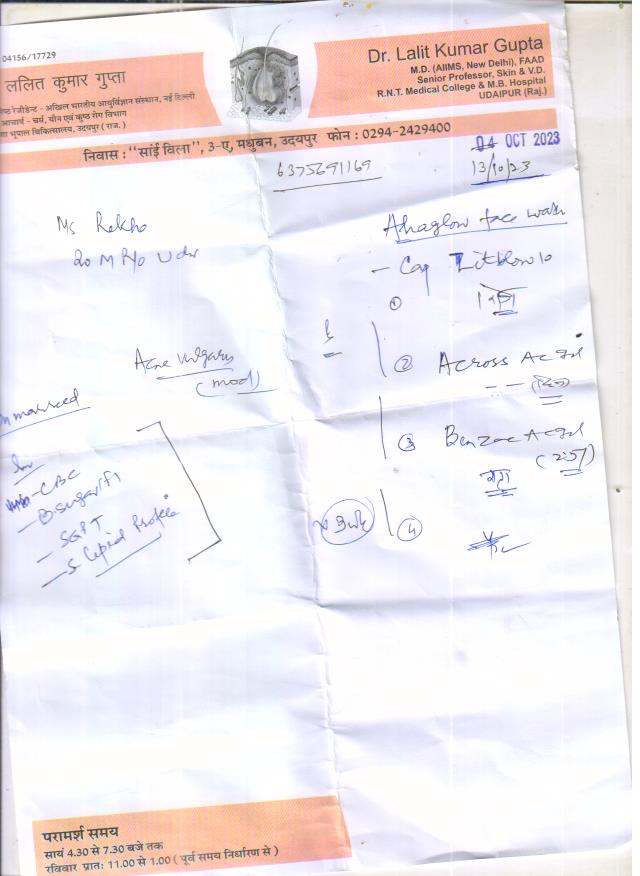 04156/17729
ललित कुमार गुप्ता
रेजीडेन्ट - अखिल भारतीय आयुर्विज्ञान संस्थान, नई दिल्ली
आचार्य - चर्म, यौन एवं कुष्ठ रोग विभाग
भूपाल चिकित्सालय, उदयपुर ( राज. )
Dr. Lalit Kumar Gupta
M.D. (AIIMS, New Delhi), FAAD
Senior Professor, Skin & V.D.
R.N.T. Medical College & M.B. Hospital
UDAIPUR (Raj.)
निवास : "सांई विला", 3-ए, मधुबन, उदयपुर फोन : 0294-2429400
04 OCT 2023
6375691169
13/10/23
Ms Rekha
Ahaglow face wash
- Cap
①
Acne Vulgaris
(mod)
② Across AC gel
unmarried
③ Benzac AC gel
(2.5)
Inv
- CBC
- B sugar (F)
- SGPT
- S Lipid Profile
④
परामर्श समय
सायं 4.30 से 7.30 बजे तक
रविवार प्रातः 11.00 से 1.00 ( पूर्व समय निर्धारण से )